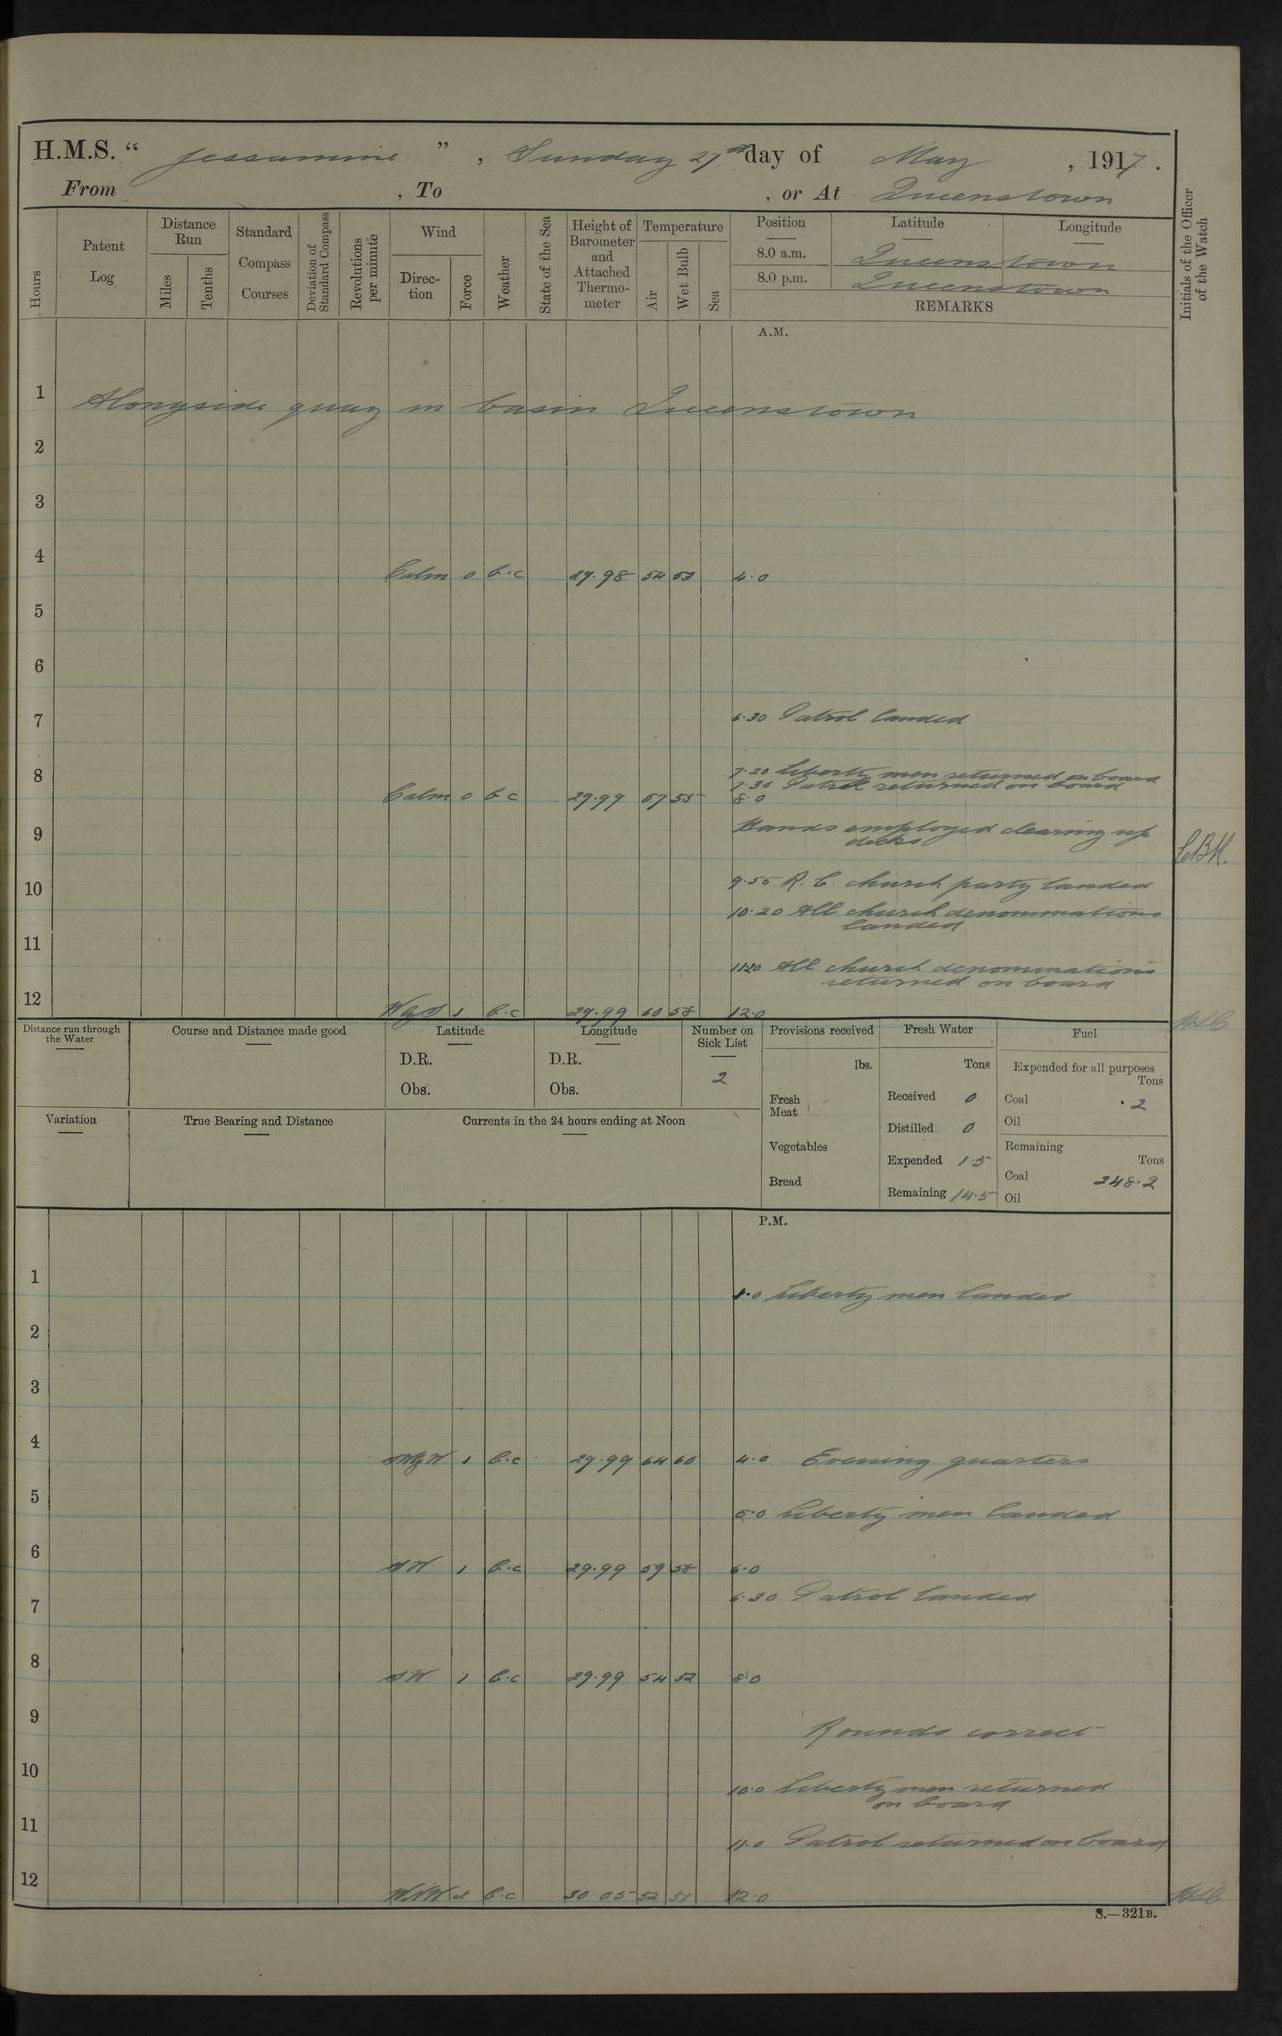 H.M.S. “ Jessamine ” , Sunday 27th day of May , 1917 .
From , To , or At Queenstown
Hours
Patent Log
Distance Run
Miles
Tenths
Standard Compass Courses
Deviation of Standard Compass
Revolutions per minute
Wind
Direc- tion
Force
Weather
State of the Sea
Height of Barometer and Attached Thermo- meter
Temperature
Air
Wet Bulb
Sea
Position Latitude Longitude
8.0 a.m. Queenstown
8.0 p.m. Queenstown
REMARKS
Initials of the Officer of the Watch
A.M.
1 Alongside quay in basin Queenstown
2
3
4 Calm 0 b.c 29.98 54 53 4.0
5
6
7 6.30 Patrol landed
8 7.20 Liberty men returned on board
7.35 Patrol returned on board
Calm 0 b c 29.99 57 55 8.0
9 Hands employed clearing up
decks
10 9.55 R. C. church party landed
10.20 All church denominations
landed
11 11.20 All church denominations
returned on board
12 WbyS 1 b.c 29.99 60 58 12.0
Distance run through the Water
Course and Distance made good
Latitude
D.R.
Obs.
Longitude
D.R.
Obs.
Number on Sick List
2
Provisions received
lbs.
Fresh Meat
Vegetables
Bread
Fresh Water
Tons
Received 0
Distilled 0
Expended 1.5
Remaining 14.5
Fuel
Expended for all purposes
Tons
Coal .2
Oil
Remaining
Tons
Coal 248.2
Oil
Variation
True Bearing and Distance
Currents in the 24 hours ending at Noon
P.M.
1 1.0 Liberty men landed
2
3
4 SWbyW 1 b.c 29.99 64 60 4.0 Evening quarters
5 5.0 Liberty men landed
6 SW 1 b.c 29.99 59 58 6.0
7 6.30 Patrol landed
8 SW 1 b.c 29.99 54 52 8.0
9 Rounds correct
10 10.0 Liberty men returned
on board
11 11.0 Patrol returned on board
12 WNW 2 b.c 30 05 52 51 12.0
S.—321B.